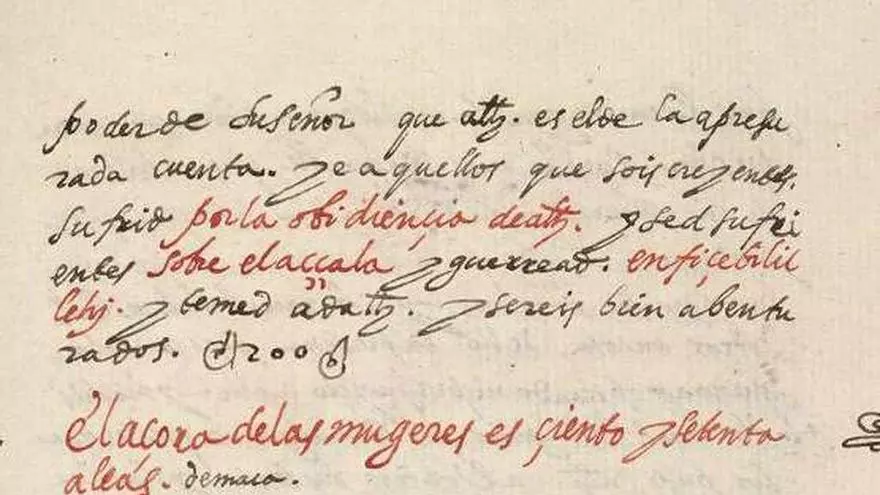 poder de su señor que allh. es el de la apresu
rada cuenta. ye aquellos que sois creyentes.
sufrid por la obidiençia de allh. y sed sufri
entes sobre el accala y guerread. en fiçebilil
lehi. y temed ad allh. y sereis bien abentu
rados. 200
el açora de las mugeres es çiento y setenta
aleas. de maca.